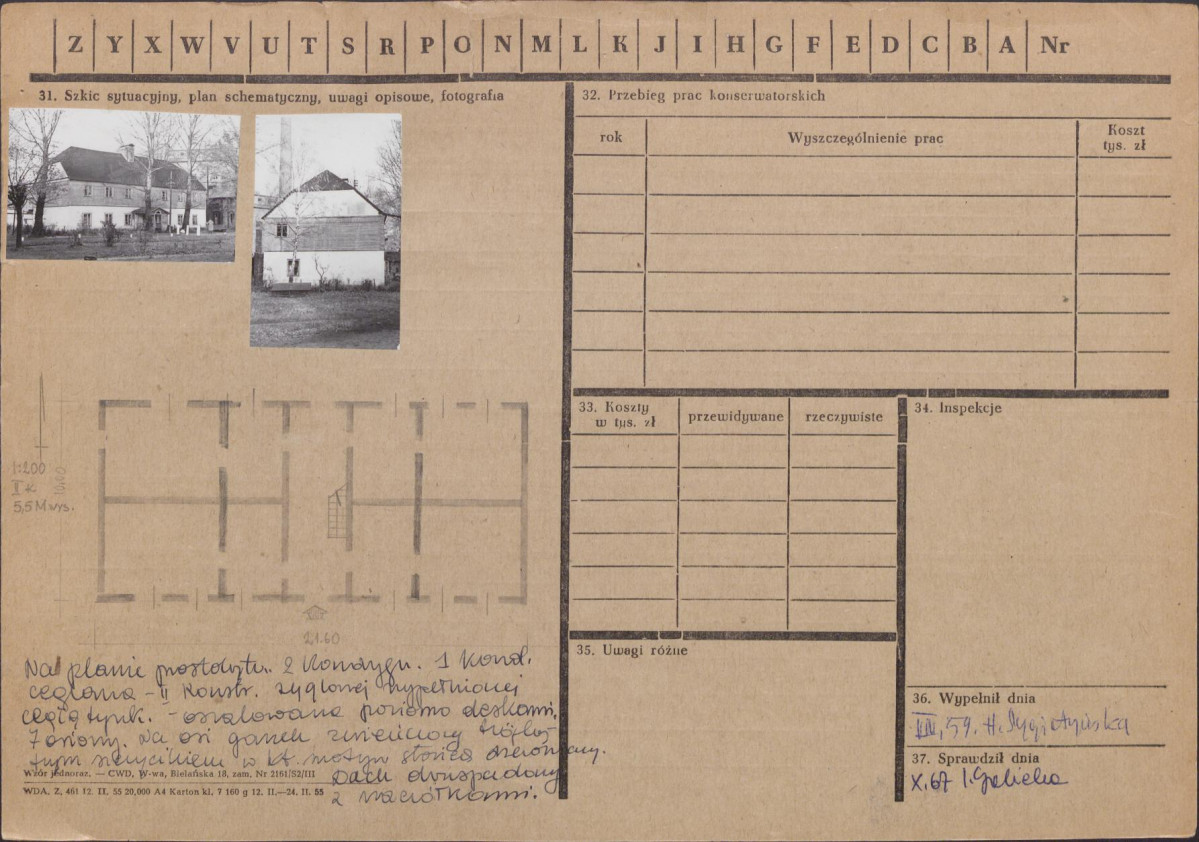 Z Y X W V U T S R P O N M L K J I H G F E D C B A Nr
31. Szkic sytuacyjny, plan schematyczny, uwagi opisowe, fotografia
1:200
II K
5,5 M wys.
10.60
21.60
Na planie prostokątn. 2 Kondygn. 1 Kond.
ceglana - II Konstr. ryglowej wypełnionej
cegłą tynk. - oszalowana poziomo deskami.
7 osiowy. Na osi ganek zwieńczony trójkąt
nym szczycikiem w kt. motyw słońca
Dach dwuspadowy
z naczółkami.
Wzór jednoraz. — CWD, W-wa, Bielańska 18, zam. Nr 2161/S2/III
WDA. Z. 461 12. II. 55 20,000 A4 Karton kl. 7 160 g 12. II.—24. II. 55
32. Przebieg prac konserwatorskich
rok
Wyszczególnienie prac
Koszt
tys. zł
33. Koszty
w tys. zł
przewidywane
rzeczywiste
34. Inspekcje
35. Uwagi różne
36. Wypełnił dnia
59. H.
37. Sprawdził dnia
X.67 I. Galicka